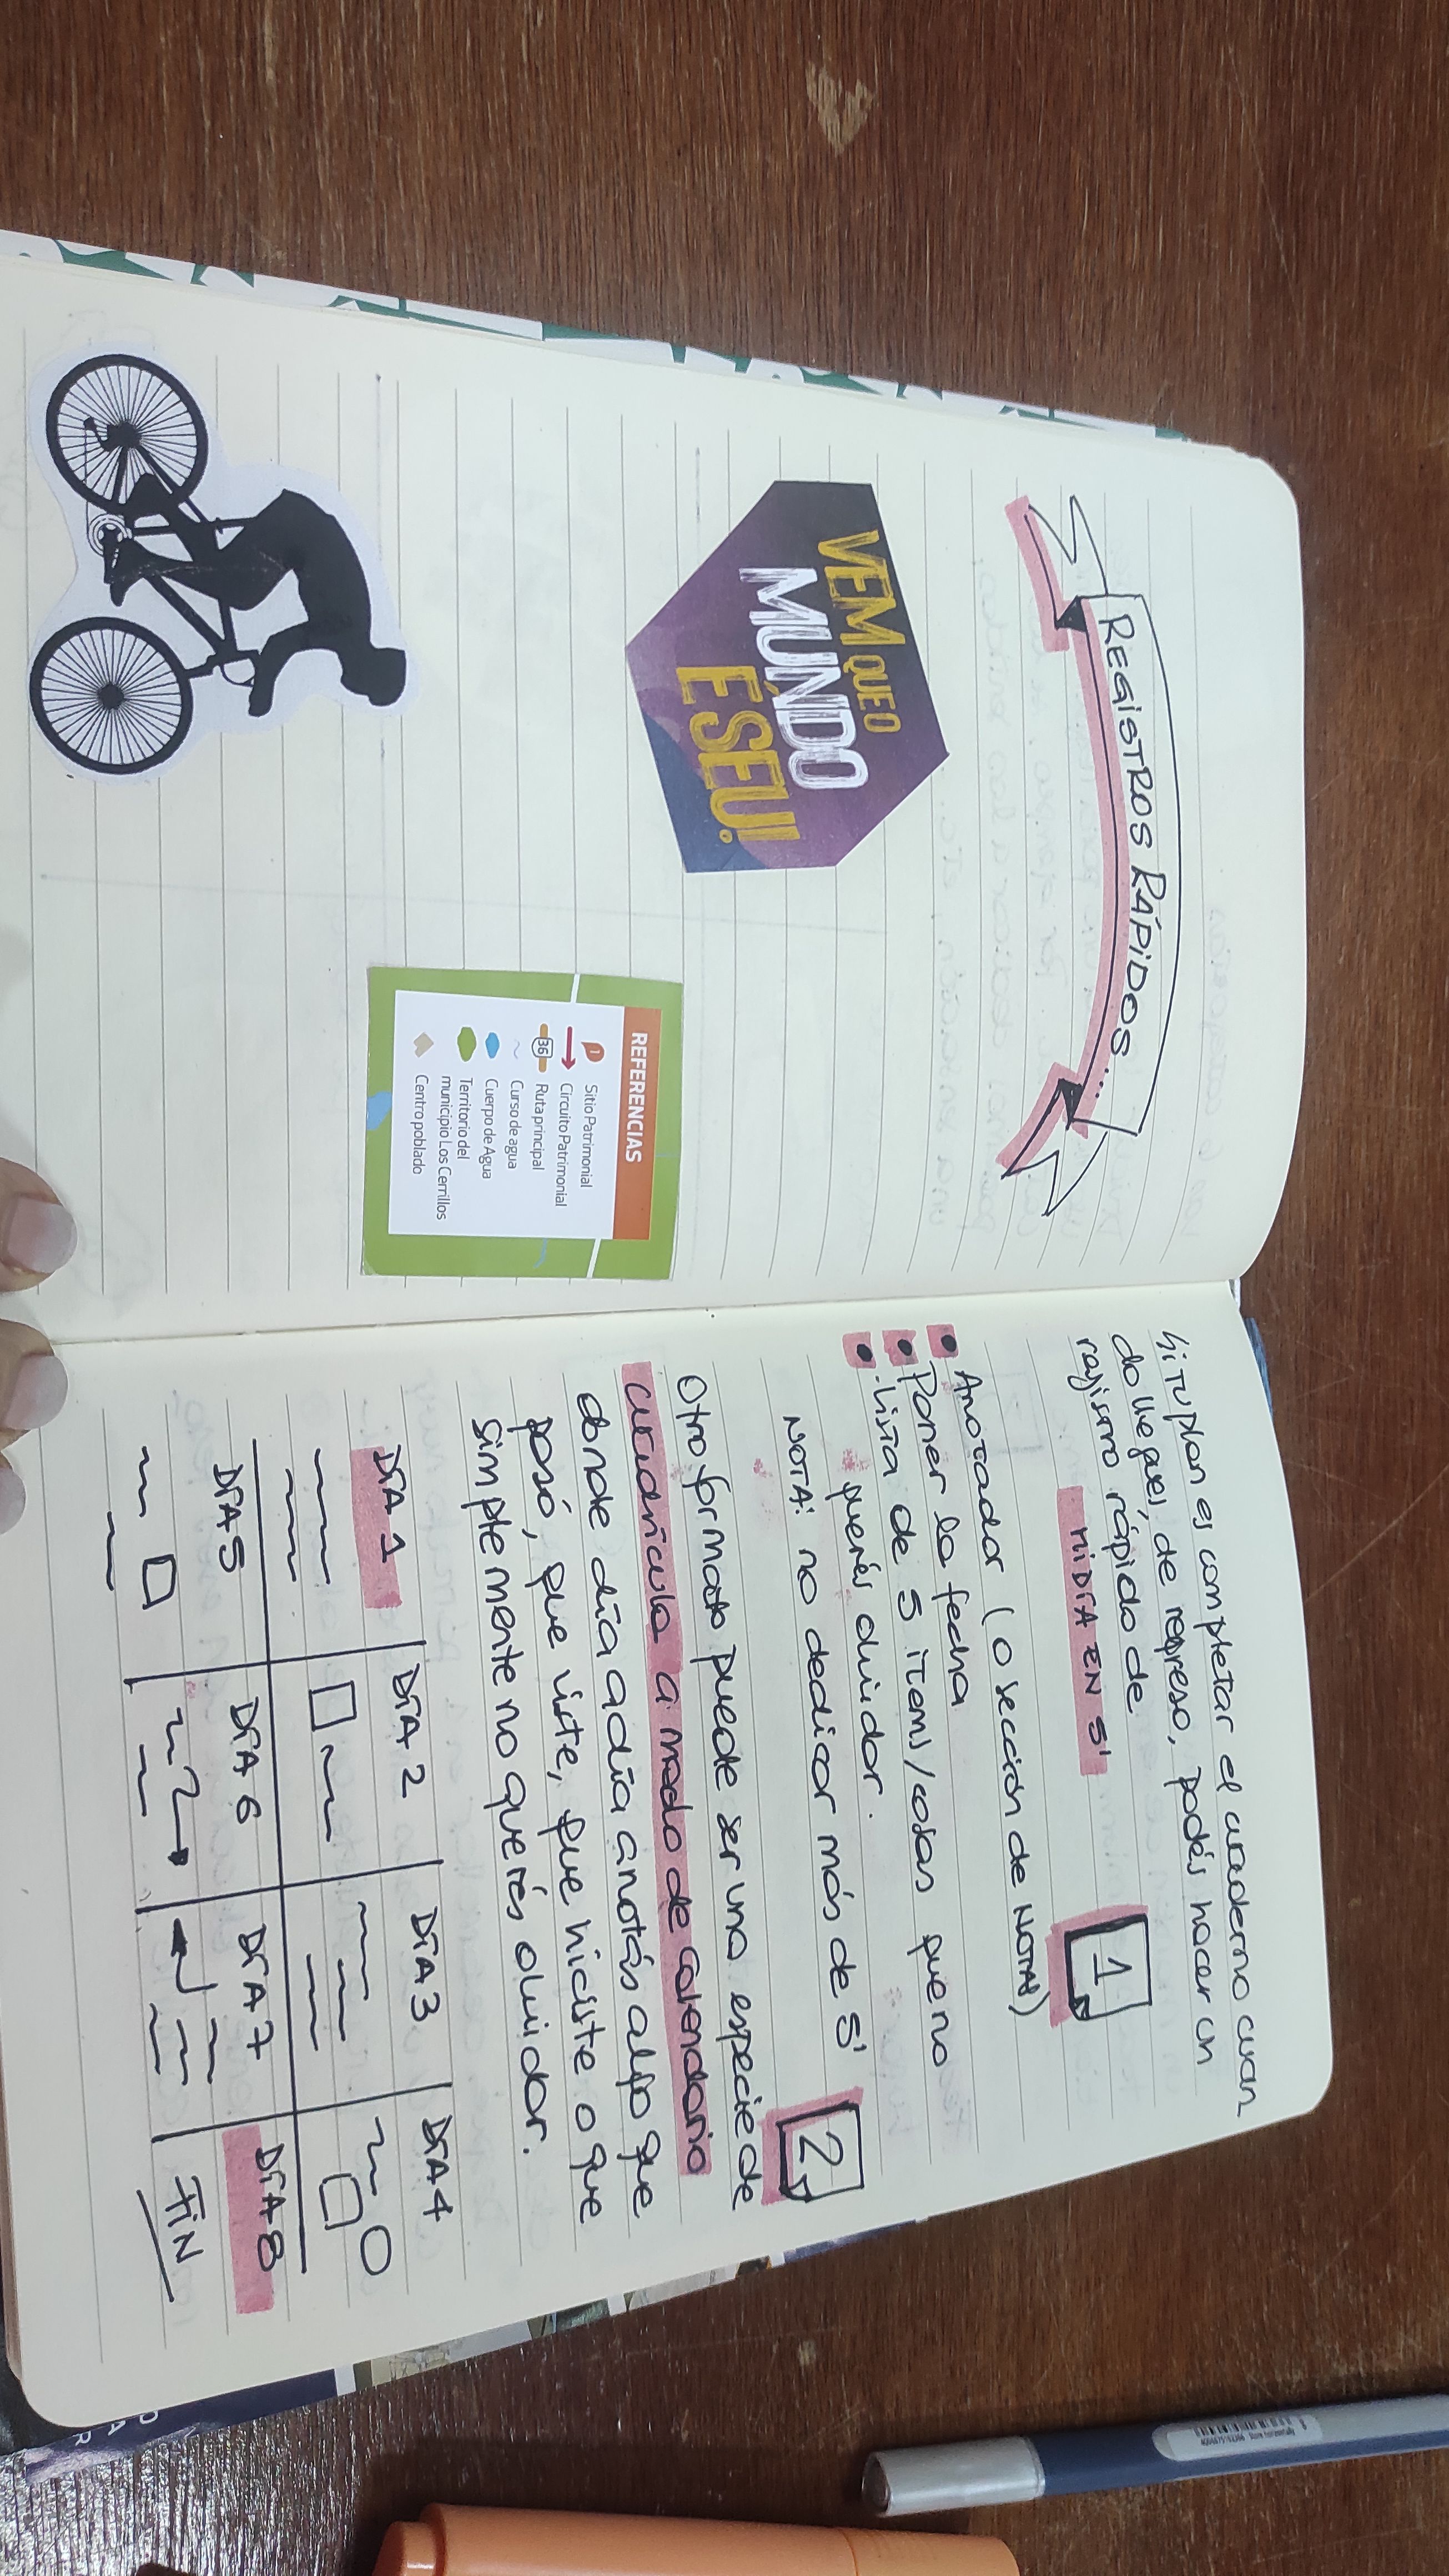 REGISTROS RÁPIDOS....
VEM QUE O
MUNDO
É SEU!
REFERENCIAS
1 Sitio Patrimonial
Circuito Patrimonial
36 Ruta principal
Curso de agua
Cuerpo de Agua
Territorio del
municipio Los Cerrillos
Centro poblado
Si tu plan es completar el cuaderno cuan
do llegues, de regreso, podés hacer un
registro rápido de
MI DÍA EN 5'
1
• Anotador (o sección de NOTAS)
• Poner la fecha
• -Lista de 5 items/cosas que no
querés olvidar.
NOTA: no dedicar más de 5'
2
Otro formato puede ser una especie de
cuadrícula a modo de calendario
donde día a día anotás algo que
pasó, que viste, que hiciste o que
simplemente no querés olvidar.
DÍA 1 DÍA 2 DÍA 3 DÍA 4
DÍA 5 DÍA 6 DÍA 7 DÍA 8
FIN